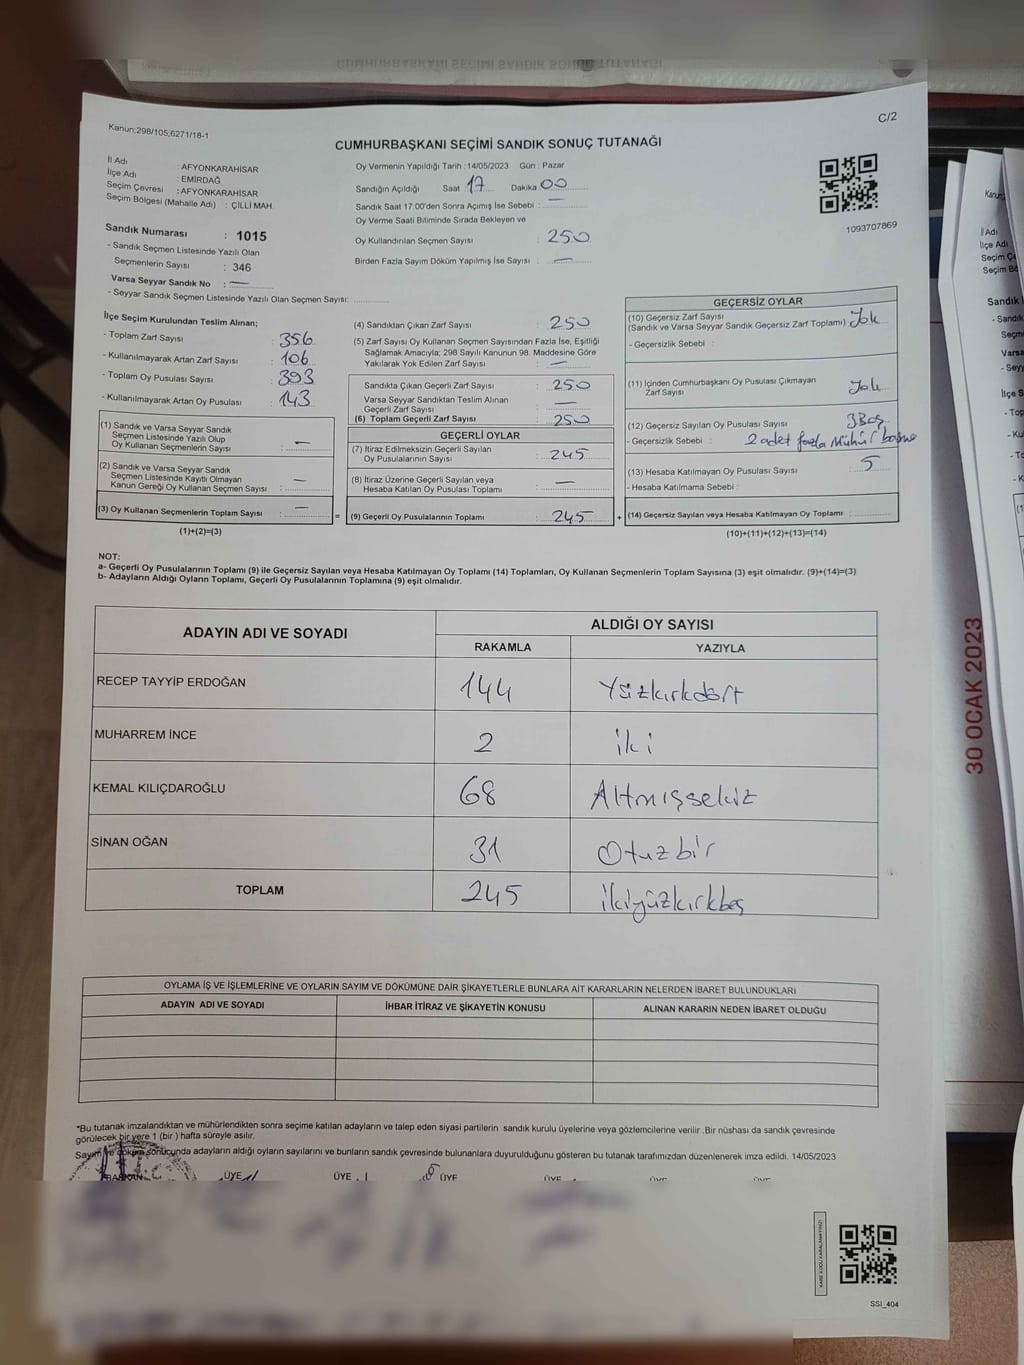 CUMHURBAŞKANI SEÇİMİ SANDIK SONUÇ TUTANAĞI
C/2
Kanun;298/105,6271/18-1
CUMHURBAŞKANI SEÇİMİ SANDIK SONUÇ TUTANAĞI
İl Adı : AFYONKARAHİSAR
İlçe Adı : EMİRDAĞ
Seçim Çevresi : AFYONKARAHİSAR
Seçim Bölgesi (Mahalle Adı) : ÇİLLİ MAH.
Sandık Numarası : 1015
- Sandık Seçmen Listesinde Yazılı Olan
Seçmenlerin Sayısı : 346
Varsa Seyyar Sandık No : —
- Seyyar Sandık Seçmen Listesinde Yazılı Olan Seçmen Sayısı:
Oy Vermenin Yapıldığı Tarih : 14/05/2023 Gün : Pazar
Sandığın Açıldığı Saat : 17 Dakika 00
Sandık Saat 17:00'den Sonra Açımış İse Sebebi : —
Oy Verme Saati Bitiminde Sırada Bekleyen ve
Oy Kullandırılan Seçmen Sayısı : 250
Birden Fazla Sayım Döküm Yapılmış İse Sayısı : —
1093707869
İlçe Seçim Kurulundan Teslim Alınan;
- Toplam Zarf Sayısı : 356
- Kullanılmayarak Artan Zarf Sayısı : 106
- Toplam Oy Pusulası Sayısı : 393
- Kullanılmayarak Artan Oy Pusulası : 143
(1) Sandık ve Varsa Seyyar Sandık
Seçmen Listesinde Yazılı Olup
Oy Kullanan Seçmenlerin Sayısı : —
(2) Sandık ve Varsa Seyyar Sandık
Seçmen Listesinde Kayıtlı Olmayan
Kanun Gereği Oy Kullanan Seçmen Sayısı : —
(3) Oy Kullanan Seçmenlerin Toplam Sayısı : —
(1)+(2)=(3)
(4) Sandıktan Çıkan Zarf Sayısı : 250
(5) Zarf Sayısı Oy Kullanan Seçmen Sayısından Fazla İse, Eşitliği
Sağlamak Amacıyla; 298 Sayılı Kanunun 98. Maddesine Göre
Yakılarak Yok Edilen Zarf Sayısı : —
Sandıkta Çıkan Geçerli Zarf Sayısı : 250
Varsa Seyyar Sandıktan Teslim Alınan
Geçerli Zarf Sayısı : —
(6) Toplam Geçerli Zarf Sayısı : 250
GEÇERLİ OYLAR
(7) İtiraz Edilmeksizin Geçerli Sayılan
Oy Pusulalarının Sayısı : 245
(8) İtiraz Üzerine Geçerli Sayılan veya
Hesaba Katılan Oy Pusulası Toplamı : —
= (9) Geçerli Oy Pusulalarının Toplamı : 245 +
GEÇERSİZ OYLAR
(10) Geçersiz Zarf Sayısı
(Sandık ve Varsa Seyyar Sandık Geçersiz Zarf Toplamı) : Yok
- Geçersizlik Sebebi :
(11) İçinden Cumhurbaşkanı Oy Pusulası Çıkmayan
Zarf Sayısı : Yok
(12) Geçersiz Sayılan Oy Pusulası Sayısı : 3 Boş
- Geçersizlik Sebebi : 2 adet fazla mühür basme
(13) Hesaba Katılmayan Oy Pusulası Sayısı : 5
- Hesaba Katılmama Sebebi :
(14) Geçersiz Sayılan veya Hesaba Katılmayan Oy Toplamı :
(10)+(11)+(12)+(13)=(14)
NOT:
a- Geçerli Oy Pusulalarının Toplamı (9) ile Geçersiz Sayılan veya Hesaba Katılmayan Oy Toplamı (14) Toplamları, Oy Kullanan Seçmenlerin Toplam Sayısına (3) eşit olmalıdır. (9)+(14)=(3)
b- Adayların Aldığı Oyların Toplamı, Geçerli Oy Pusulalarının Toplamına (9) eşit olmalıdır.
ADAYIN ADI VE SOYADI
ALDIĞI OY SAYISI
RAKAMLA YAZIYLA
RECEP TAYYİP ERDOĞAN 144 Yüzkırkdört
MUHARREM İNCE 2 iki
KEMAL KILIÇDAROĞLU 68 Altmışsekiz
SİNAN OĞAN 31 Otuzbir
TOPLAM 245 ikiyüzkırkbeş
OYLAMA İŞ VE İŞLEMLERİNE VE OYLARIN SAYIM VE DÖKÜMÜNE DAİR ŞİKAYETLERLE BUNLARA AİT KARARLARIN NELERDEN İBARET BULUNDUKLARI
ADAYIN ADI VE SOYADI İHBAR İTİRAZ VE ŞİKAYETİN KONUSU ALINAN KARARIN NEDEN İBARET OLDUĞU
*Bu tutanak imzalandıktan ve mühürlendikten sonra seçime katılan adayların ve talep eden siyasi partilerin sandık kurulu üyelerine veya gözlemcilerine verilir .Bir nüshası da sandık çevresinde
görülecek bir yere 1 (bir ) hafta süreyle asılır.
Sayım ve döküm sonucunda adayların aldığı oyların sayılarını ve bunların sandık çevresinde bulunanlara duyurulduğunu gösteren bu tutanak tarafımızdan düzenlenerek imza edildi. 14/05/2023
BAŞKAN ÜYE ÜYE ÜYE ÜYE ÜYE ÜYE
KARE KODU KARALAMAYINIZ!
SSI_404
30 OCAK 2023
Kanun;
İl Adı
İlçe Adı
Seçim Ç
Seçim Bö
Sandık
- Sandık
Seçm
Varsa
- Sey
İlçe S